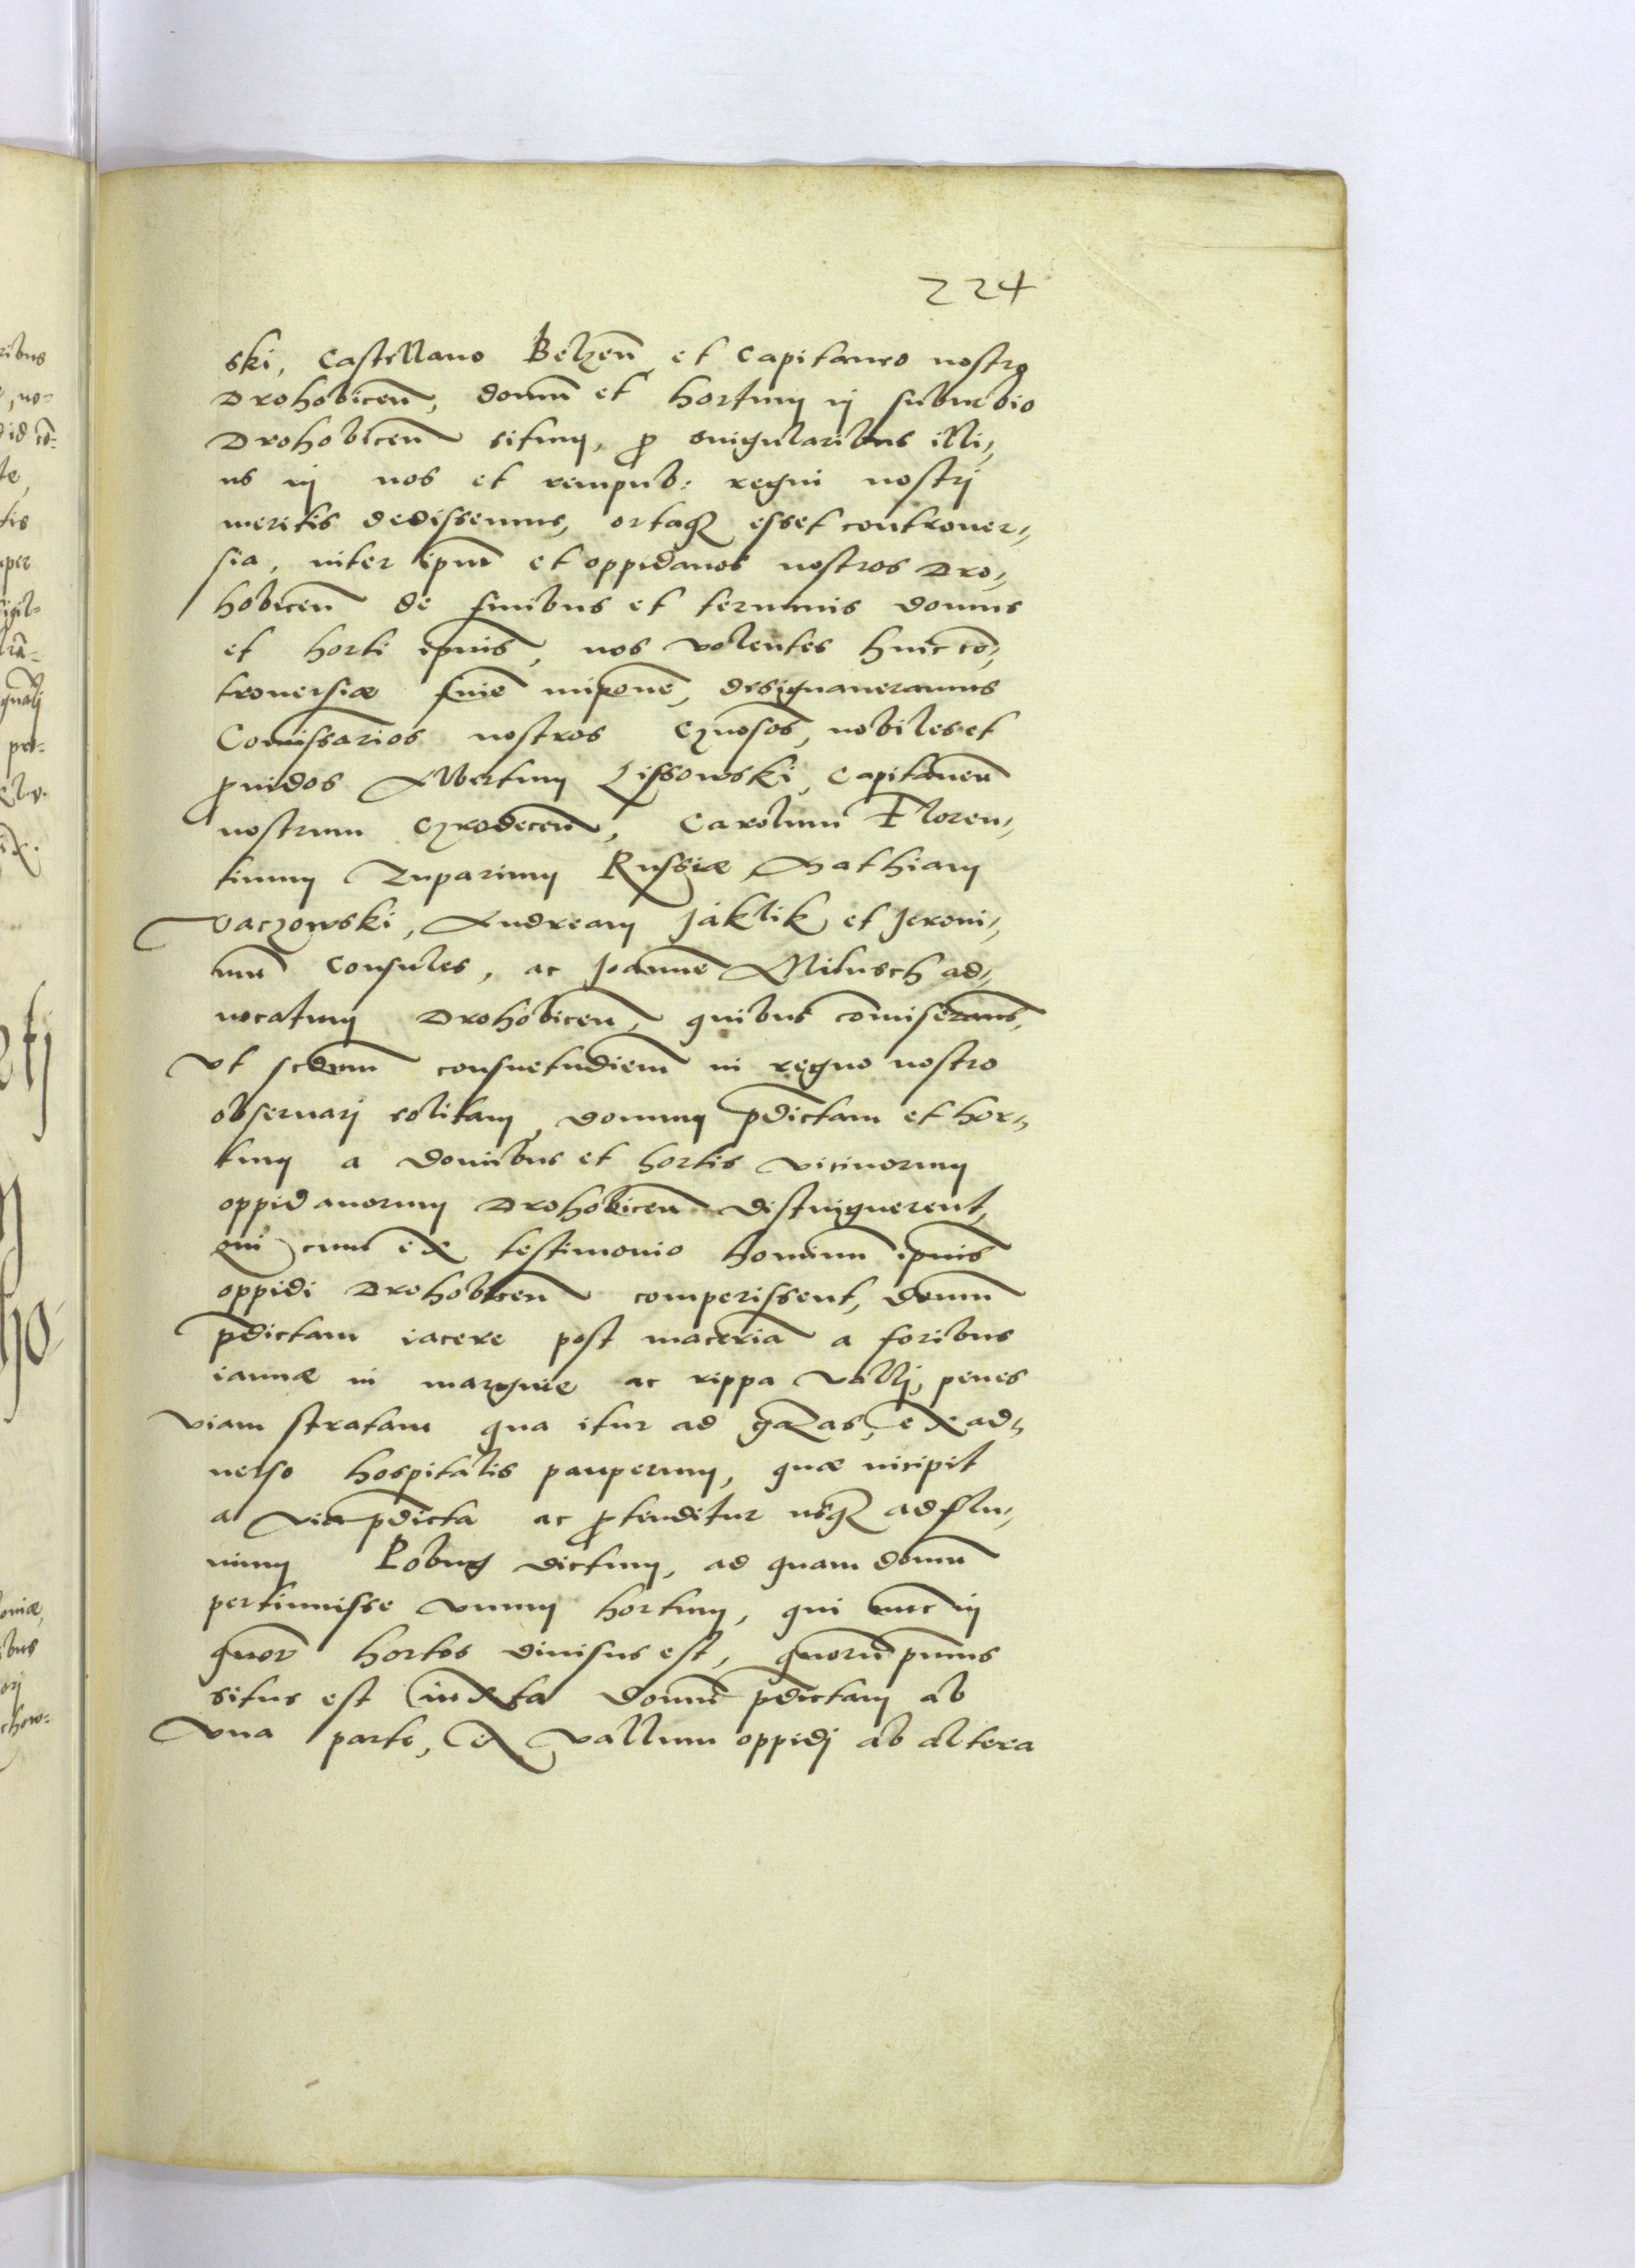 224
ski, Castellano Belzen̄, et Capitaneo nostro
Drohobicen̄, domū et hortum in suburbio
Drohobicen̄ situm, ꝓ singularibus illi„
us in nos et rempub: regni nostrj
meritis dedissemus, ortaqꝫ esset controuer„
sia, inter ip̄m et oppidanos nostros Dro„
hobicen̄ de finibus et terminis domus
et horti ip̄ius, nos volentes huic cō„
trouersiæ finē imponē, designaueramus
Com̄issarios nostros Gn̄osos, nobiles et
ꝓuidos Albertum Lissowski, Capitaneū
nostrum Grodecen̄, Carolum Floren„
tinum Zuparium Russiæ Mathiam
Vaczowski, Andream Jaklik et Jeroni„
mū Consules, ac Joannē Milusch ad„
uocatum Drohobicen̄, quibus com̄iseram̄s,
Vt scdum̄ consuetudinem in regno nostro
obseruarj solitam, domum p̄dictam et hor„
tum a domibus et hortis vicinorum
oppidanorum Drohobicen̄ distinguerent,
qui cum ex testimonio hominū ip̄ius
oppidi Drohobicen̄ comperissent, domū
p̄dictam iacere post maceriā a foribus
ianuæ in margine ac rippa vallj, penes
viam stratam qua itur ad gazas, ex ad„
uerso hospitalis pauperum, quæ incipit
a via p̄dicta ac ꝓtenditur usqꝫ ad flu„
uium Pobug dictum, ad quam domū
pertinuisse vnum hortum, qui nūc in
quor̄ hortos diuisus est, quorū p̄mus
situs est iuxta domū p̄dictam ab
vna parte, et vallum oppidj ab altera